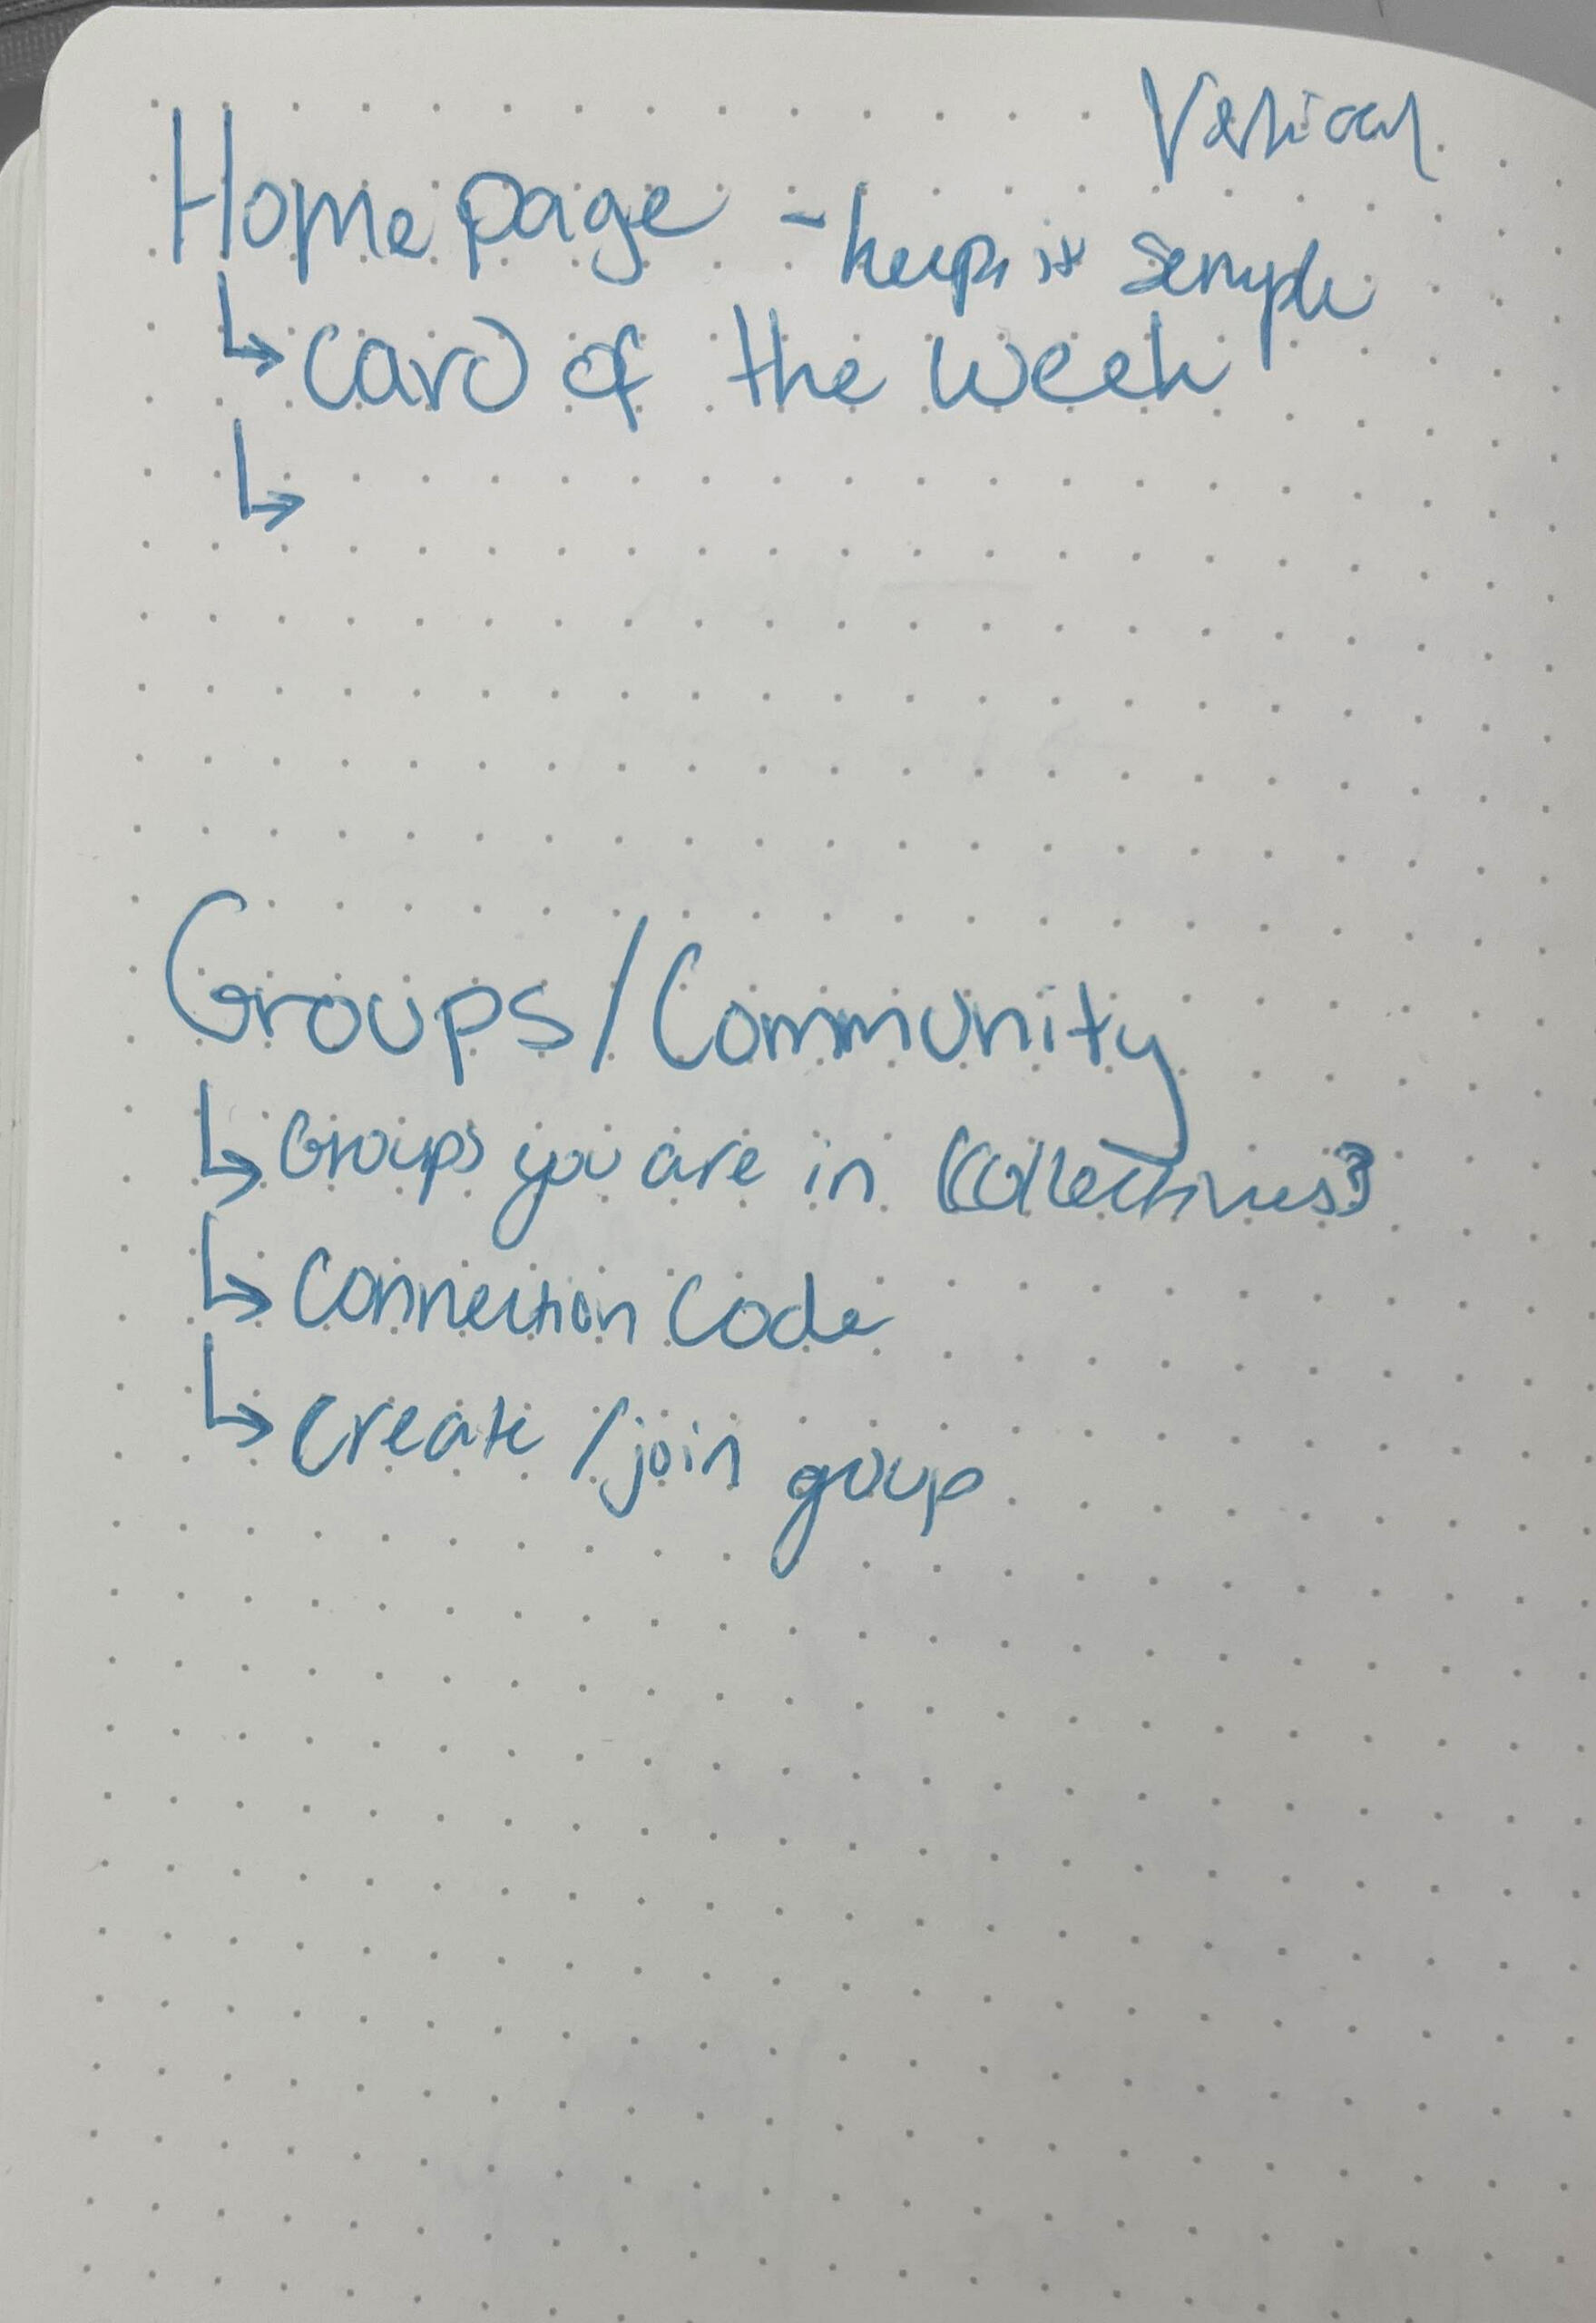 Vertical
Homepage - keep it simple
↳ Card of the week
↳
Groups/Community
↳ Groups you are in (Collectives)
↳ Connection Code
↳ Create / join group